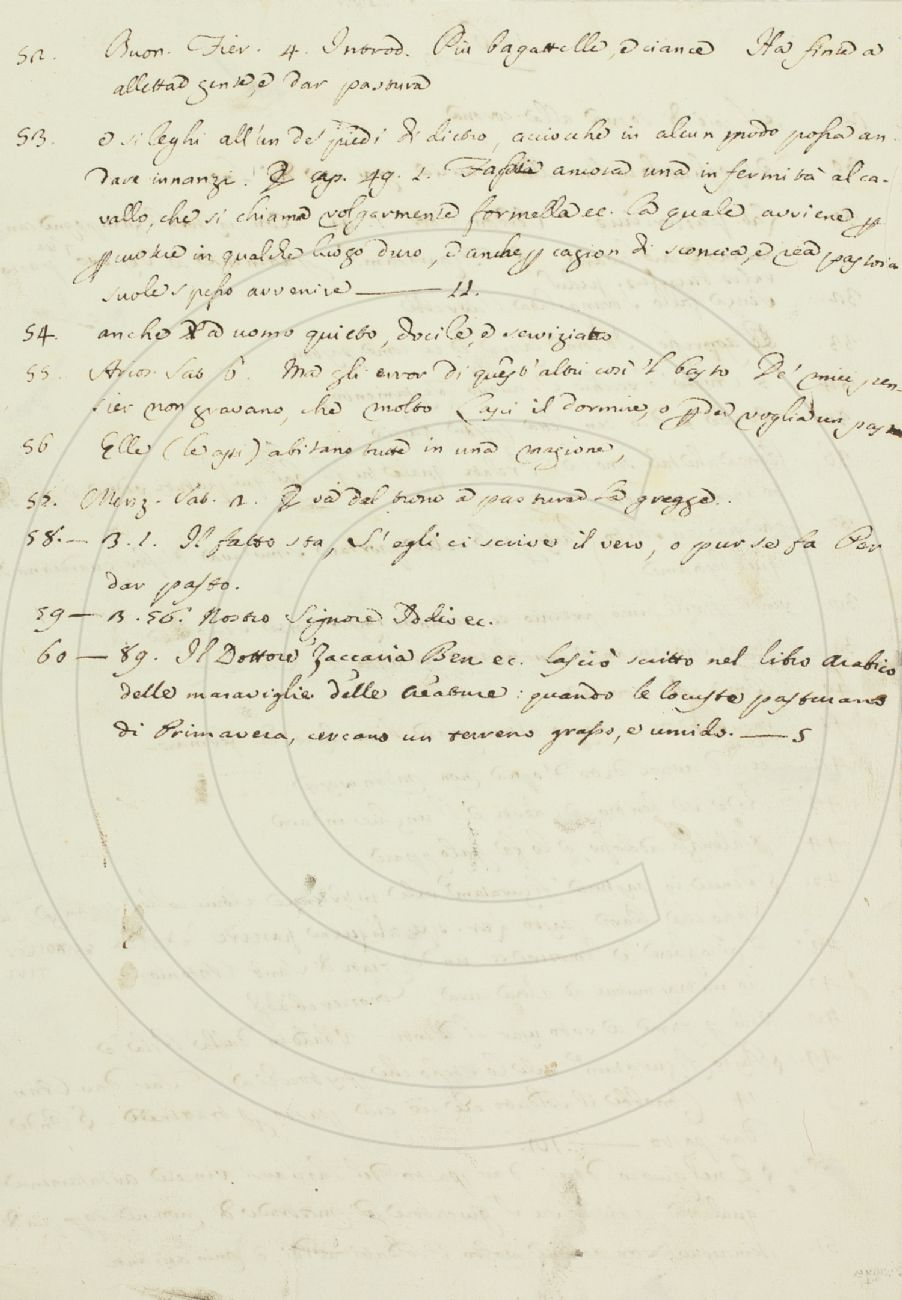 52. Buon. Fier. 4. Introd. Più bagattelle, e ciance Ha finte a
allettar gente, e dar pastura
53. e si leghi all'un de' piedi di dietro, acciocchè in alcun modo possa an-
dare innanzi. E cap. 49. 1. Fassi ancora una infermità al ca-
vallo, che si chiama volgarmente formella ec. la quale avviene
in qualche luogo duro, e anche cagion di sconcia, e rea pastoia
suole spesso avvenire — 11.
54. anche a uomo quieto, docile, e serviziato
55. Arios. Sat. 6. Ma gli error di quest'altri così 'l basto De' miei pen-
sier non gravano, che molto Lasci il dormire, o voglia un pasto
56 Elle (le api) abitano tutte in una magione,
57. Menz. Sat. 2. E va dal trono a pasturar la gregge.
58. — 3. 1. Il fatto sta, S'egli ci scrive il vero, o pur se fa Per
dar pasto.
59 — 3. 56. Nostro Signore Iddio ec.
60 — 89. Il Dottore Zaccaria Ben ec. lasciò scritto nel libro arabico
delle maraviglie delle creature: quando le locuste pasturano
di Primavera, cercano un terreno grasso, e umido. — 5